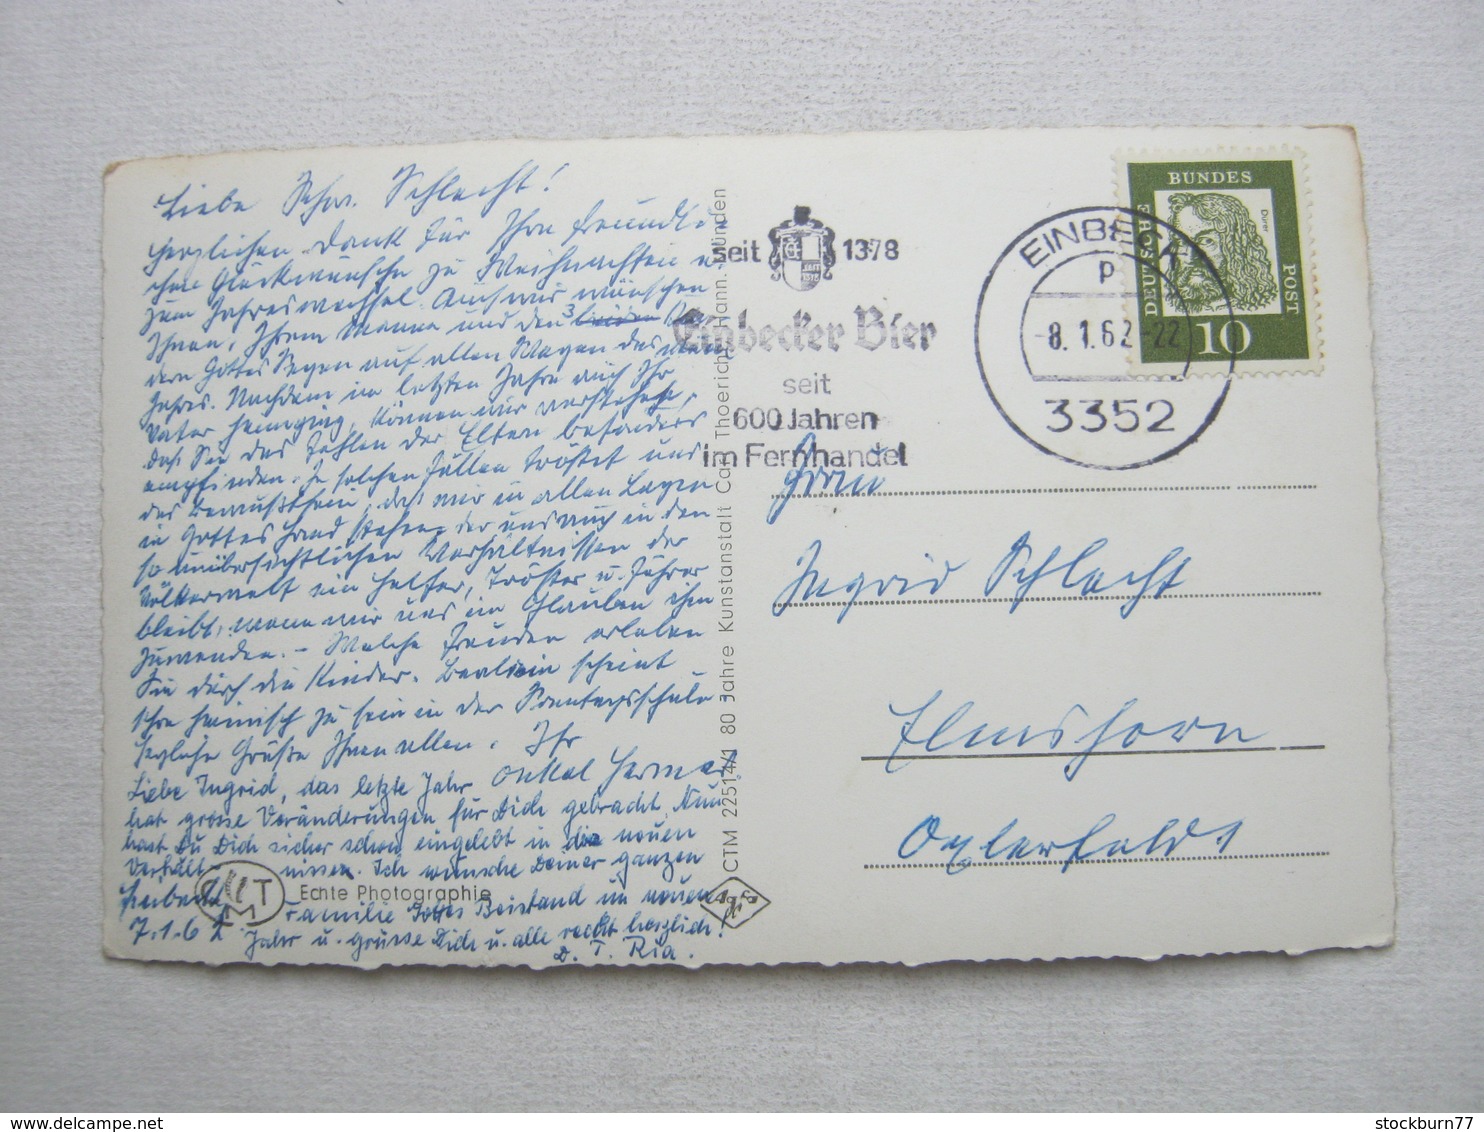 Liebe Schw. Schlecht!
Herzlichen Dank für Ihre freundli-
chen Glückwünsche zu Weihnachten u
zum Jahreswechsel. Auch wir wünschen
Ihnen, Ihrem Manne und den 3
dern Gottes Segen auf allen Wegen des neuen
Jahres. Nachdem im letzten Jahre auch Ihr
Vater heimging, können wir verstehen,
daß Sie das Fehlen der Eltern besonders
empfinden. In solchen Fällen tröstet uns
das Bewußtsein, daß wir in allen Lagen
in Gottes Hand stehen, der uns auch in den
so unübersichtlichen Verhältnissen der
Völkerwelt ein Helfer, Tröster u. Führer
bleibt, wenn wir uns im Glauben ihm
zuwenden. – Welche Freuden erleben
Sie durch die Kinder. scheint
schon heimisch zu sein in der Sonntagsschule
Herzliche Grüße Ihnen allen. Ihr
Onkel Herman
Liebe Ingrid, das letzte Jahr
hat grosse Veränderungen für Dich gebracht. Nun
hast Du Dich sicher schon eingelebt in die neuen
Verhält- nissen. Ich wünsche Deiner ganzen
Einbeck Familie Gottes Beistand im neuen
7.1.62 Jahr u. grüsse Dich u. alle recht herzlich!
D. T. Ria.
CMT
Echte Photographie
CTM 22514/1 80 Jahre Kunstanstalt Carl Thoericht, Hann.-Münden
seit 1378
Einbecker Bier
seit
600 Jahren
im Fernhandel
EINBECK
p
-8.1.62-22
3352
DEUTSCHE
BUNDES
POST
Dürer
10
Frau
Ingrid Schlecht
Elmshorn
stockburn77